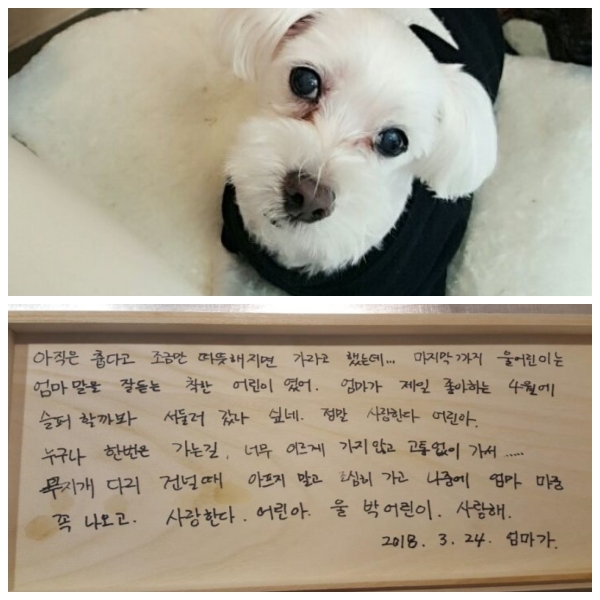 아직은 춥다고 조금만 따뜻해지면 가라고 했는데... 마지막까지 울어린이는
엄마 말을 잘듣는 착한 어린이 였어. 엄마가 제일 좋아하는 4월에
슬퍼 할까봐 서둘러 갔나 싶네. 정말 사랑한다 어린아.
누구나 한번은 가는길, 너무 아프게 가지 않고 고통없이 가서 .....
무지개 다리 건널때 아프지 말고 조심히 가고 나중에 엄마 마중
꼭 나오고. 사랑한다. 어린아. 울 박어린이. 사랑해.
2018. 3. 24. 엄마가.